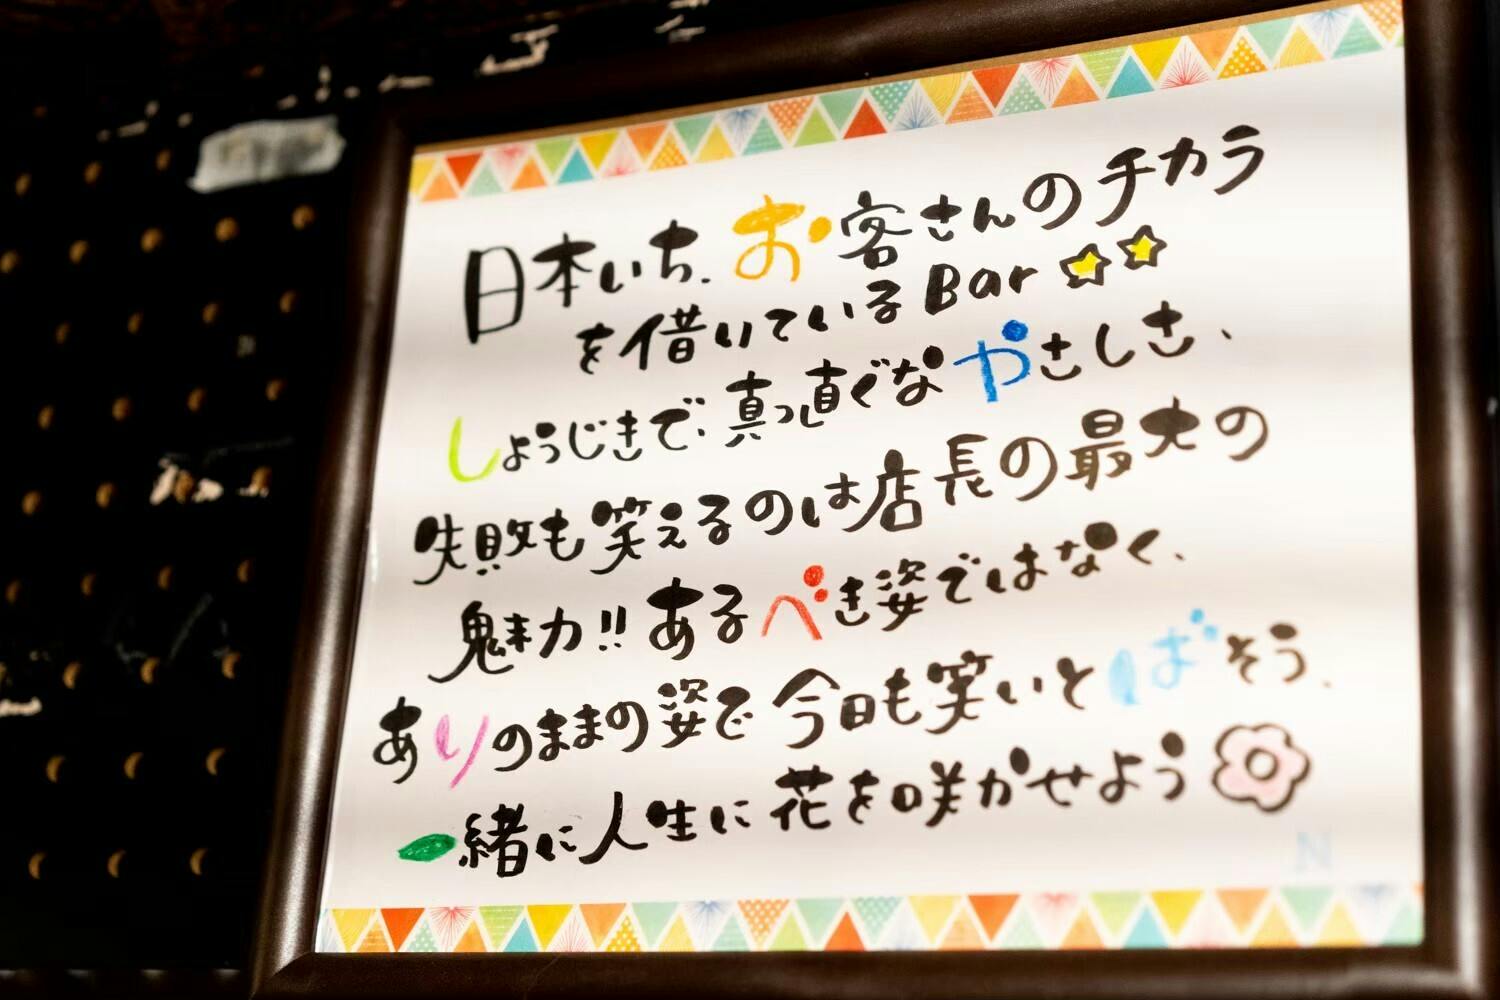 日本いち、お客さんのチカラ
を借いているBar☆☆
しょうじきで、真っ直ぐなやさしさ、
失敗も笑えるのは店長の最大の
魅力!!あるべき姿ではなく、
ありのままの姿で今日も笑いとばそう、
一緒に人生に花を咲かせよう
N